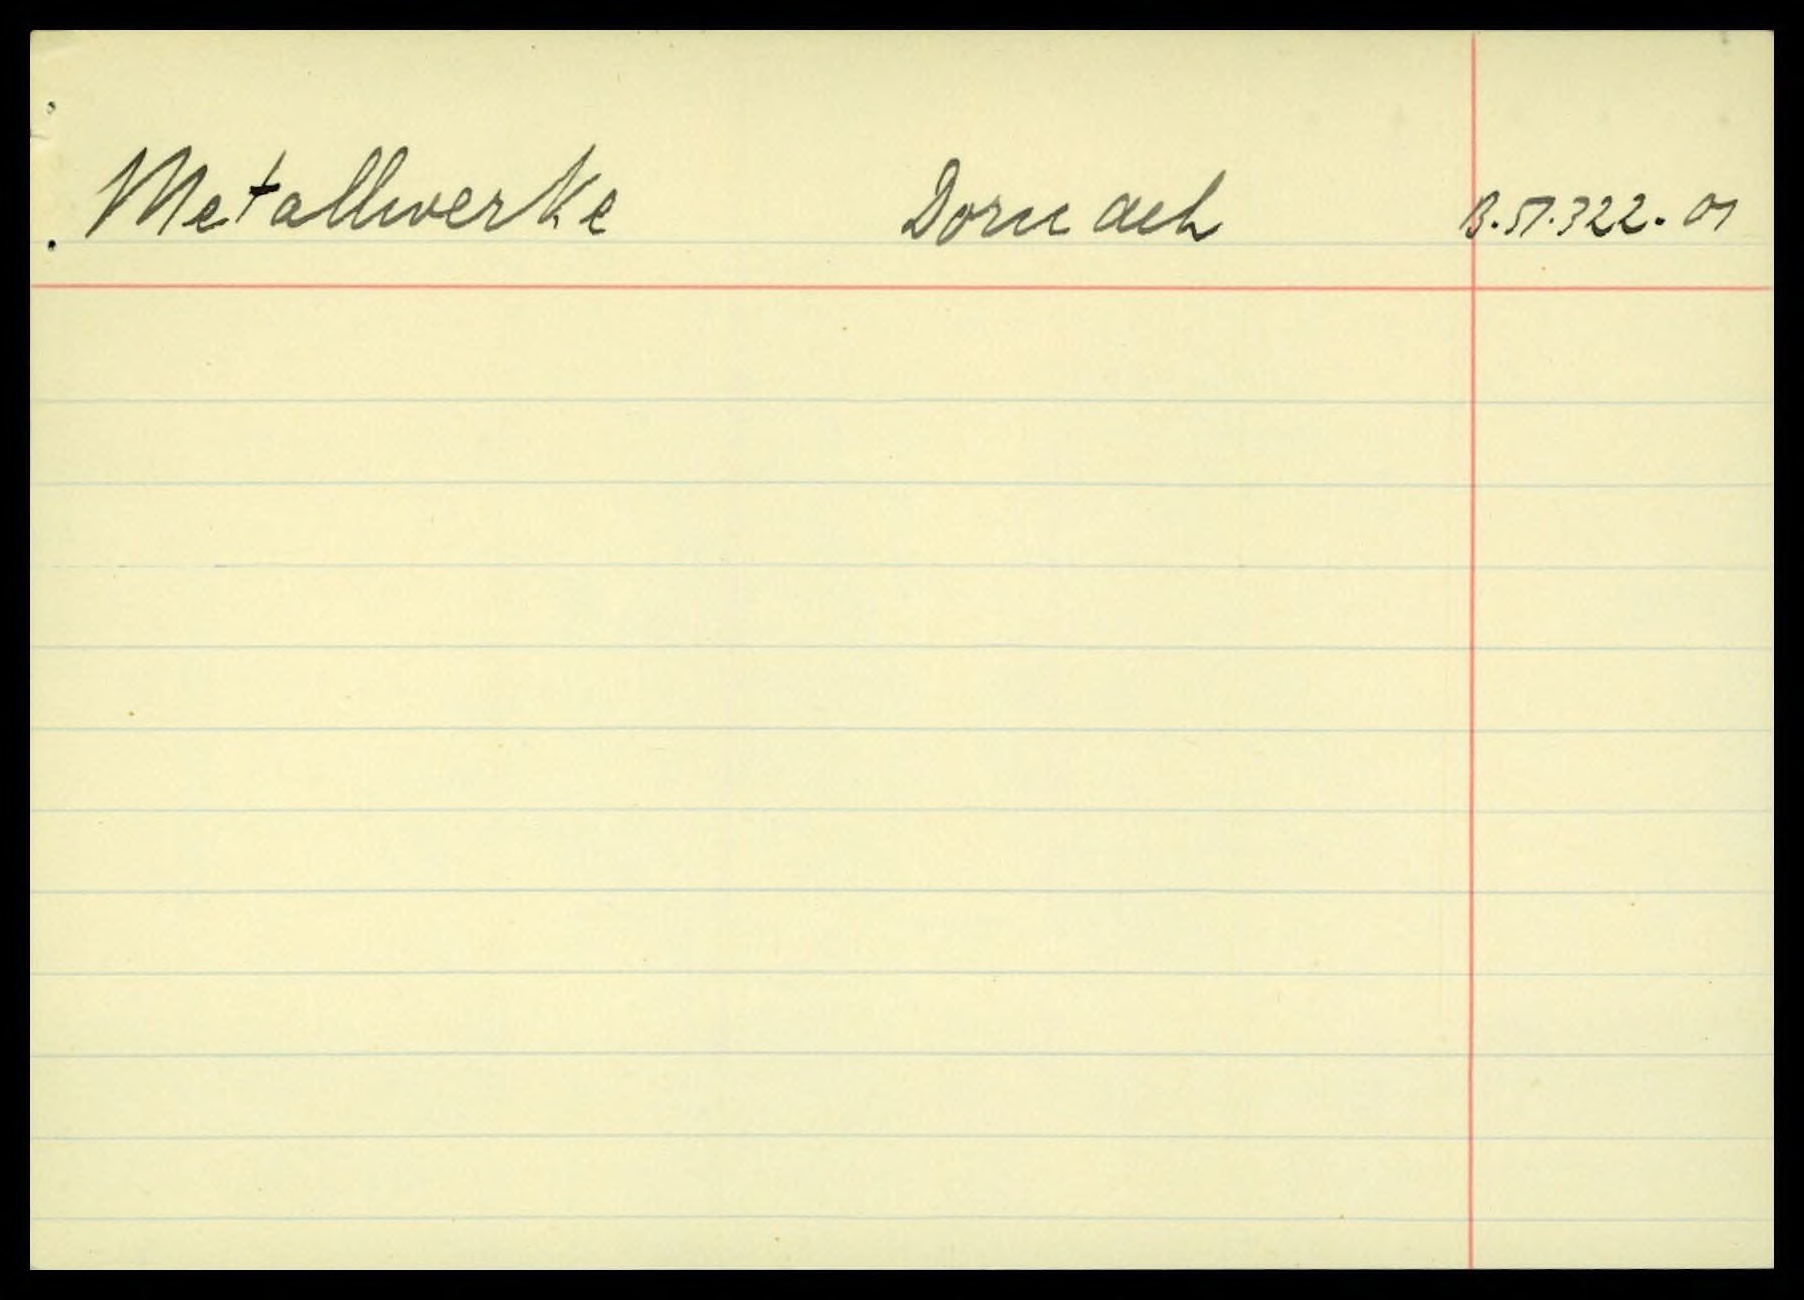 Metallwerke Dornach B.51.322.01